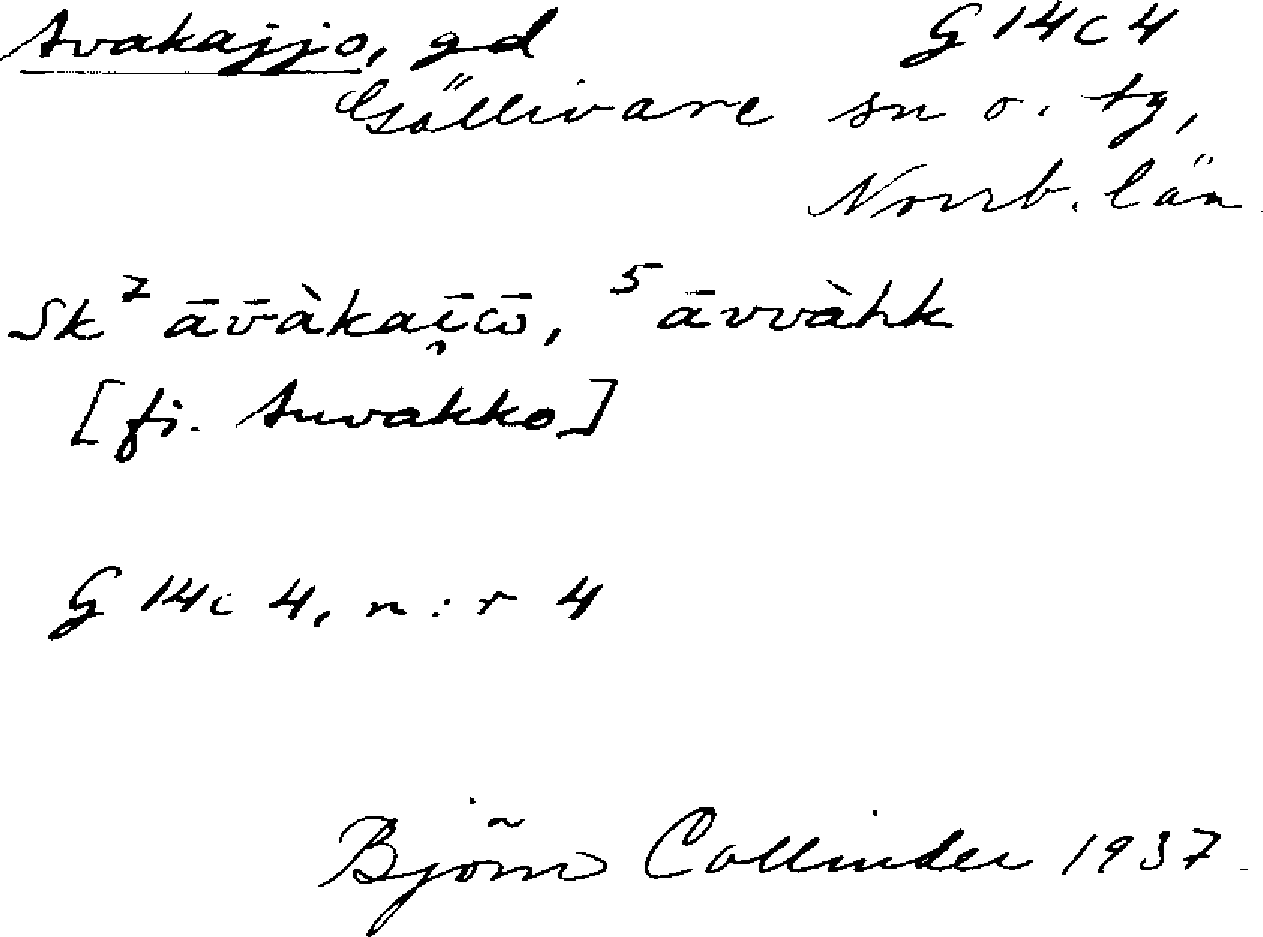 Avakajjo, gd G 14 c 4
Gällivare sn o. tg,
Norrb. län
Sk² āv̄àkaī̯ω̄, ⁵āvvàhk
[fi. Auvakko]
G 14c 4, n:r 4
Björn Collinder 1937.